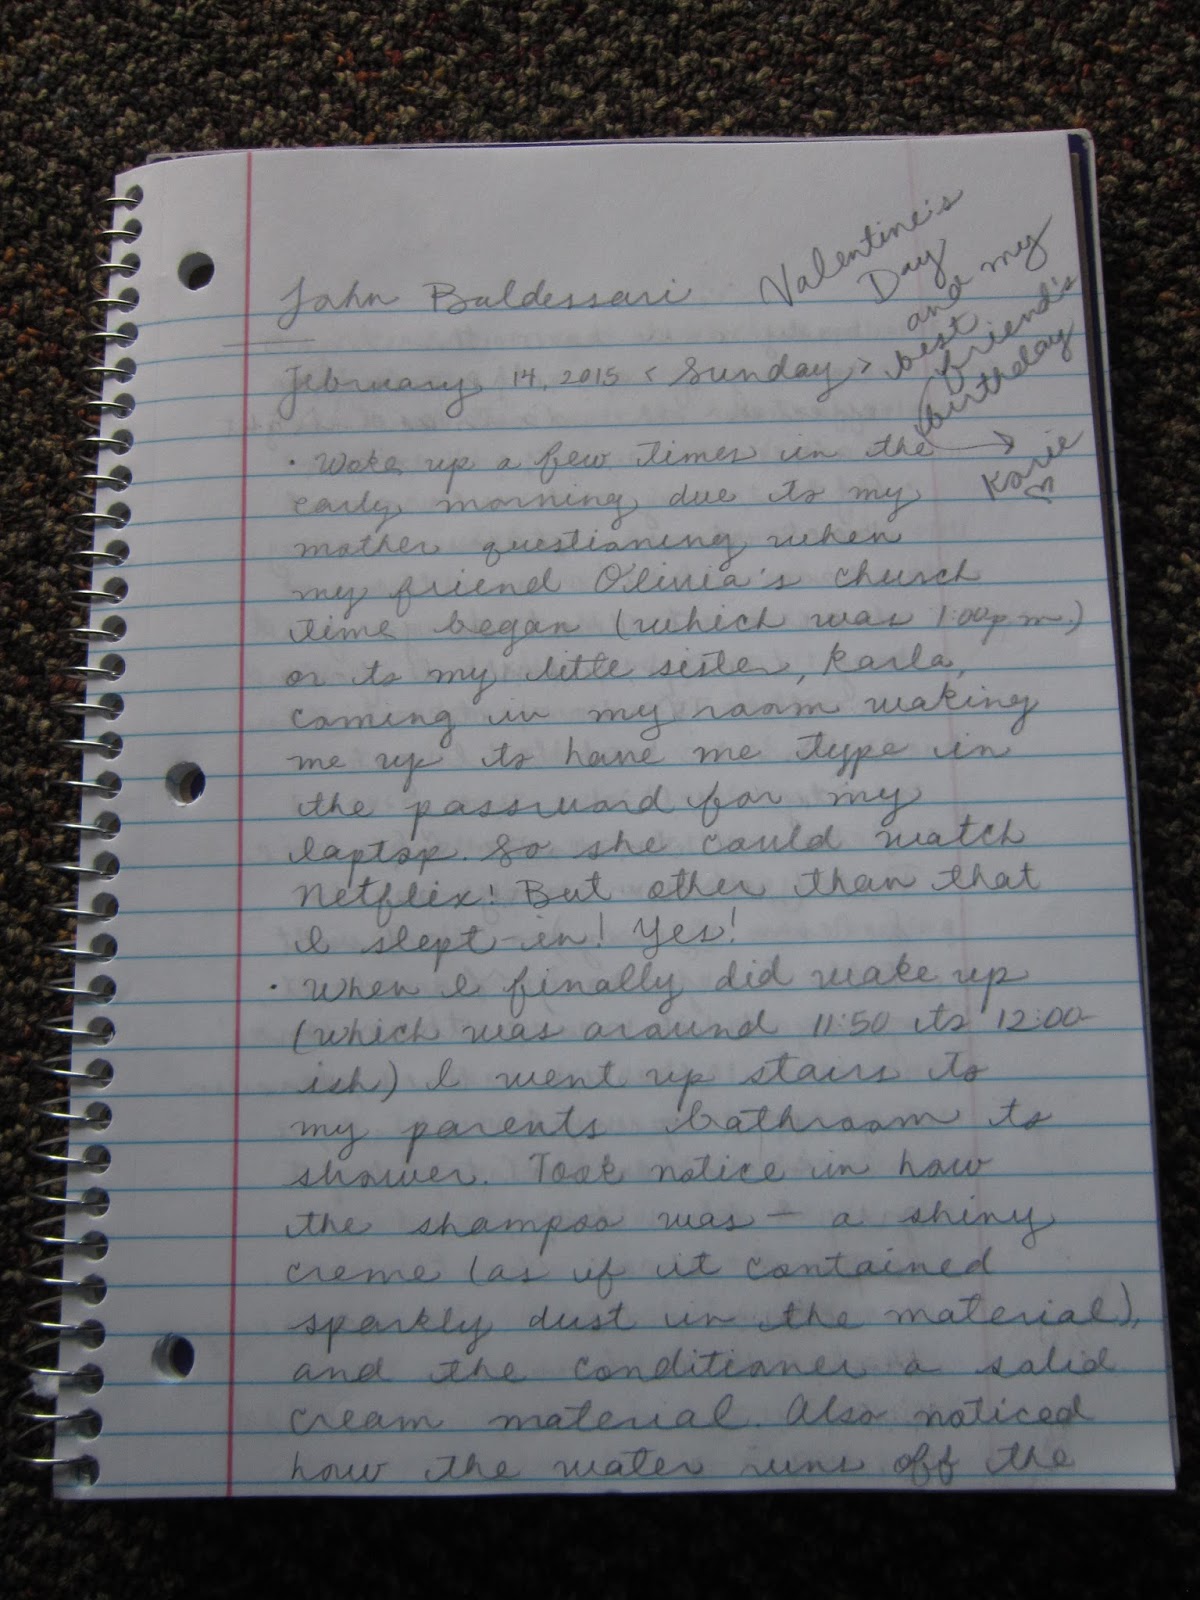 John Baldessari
Valentine's
Day
and my
best
friend's
birthday
Karie
February 14, 2015 < Sunday >
· Woke up a few times in the
early morning due to my
mother questioning when
my friend Olivia's church
time began (which was 1:00p.m.)
or to my little sister, Karla,
coming in my room waking
me up to have me type in
the password for my
laptop. So she could watch
Netflix! But other than that
I slept-in! Yes!
· When I finally did wake up
(which was around 11:50 to 12:00-
ish) I went up stairs to
my parents bathroom to
shower. Took notice in how
the shampoo was - a shiny
creme (as if it contained
sparkly dust in the material),
and the conditioner a solid
cream material. Also noticed
how the water runs off the